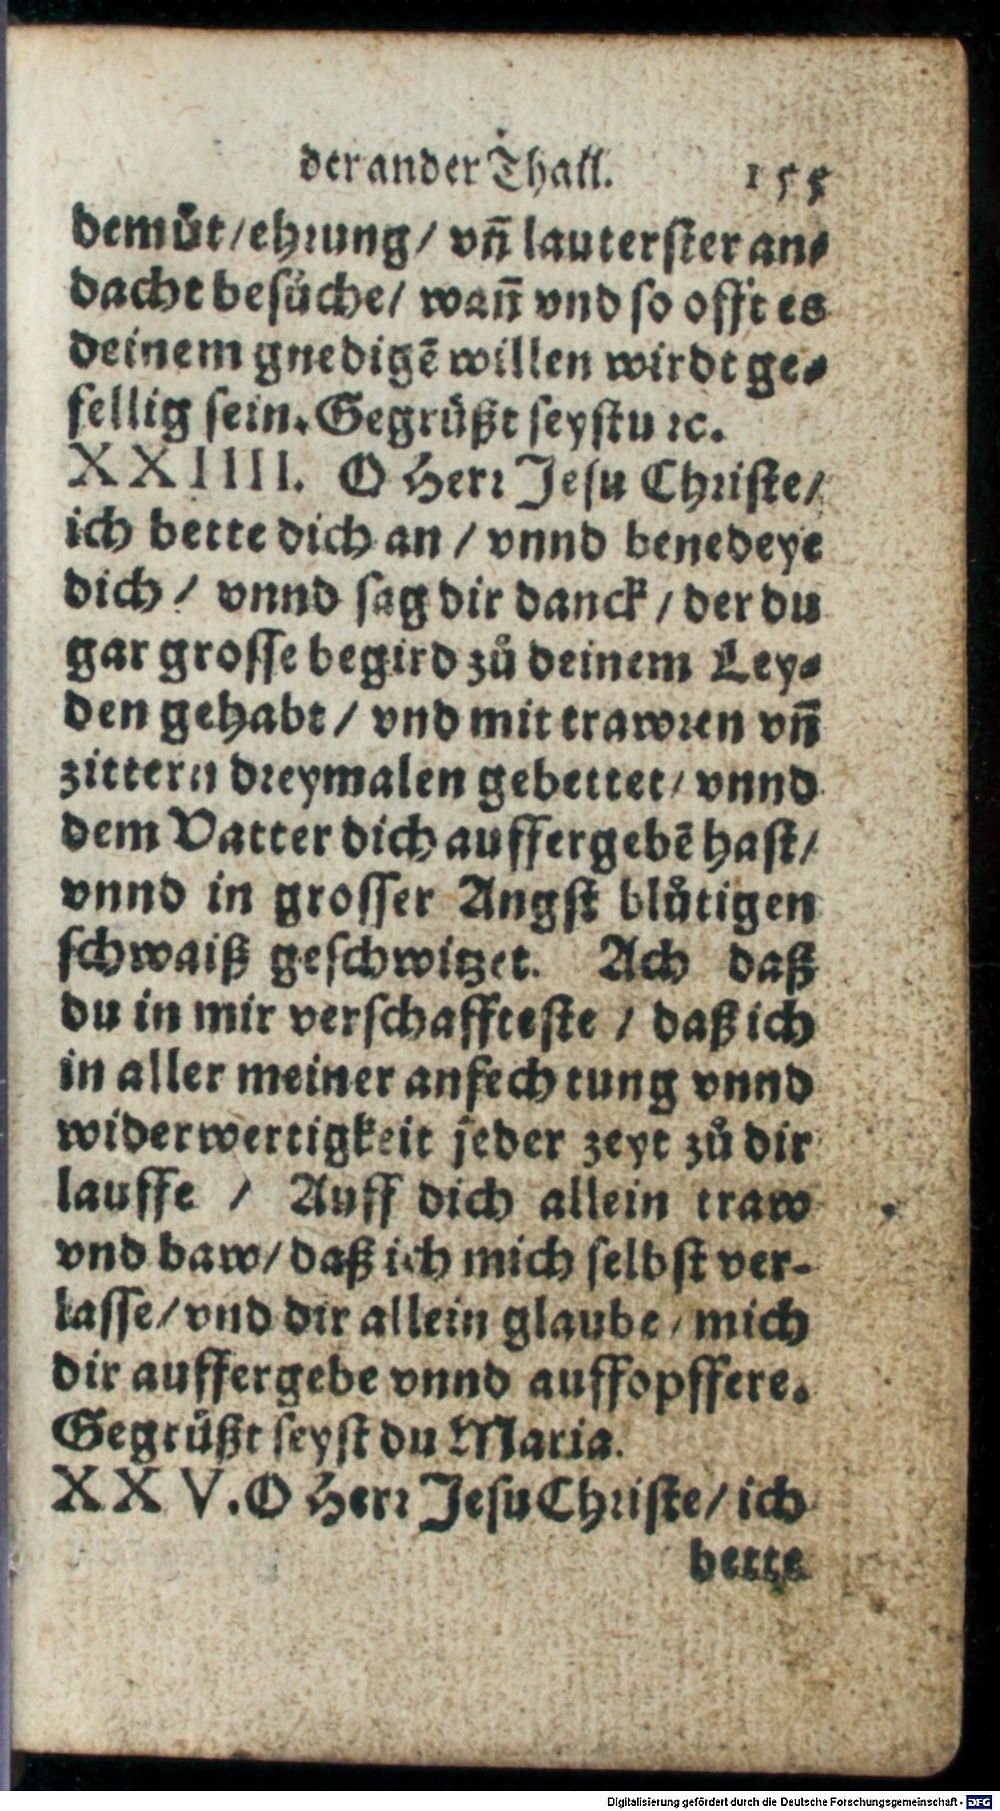 der ander Thall. 155
demuͤt/ehrung/ vñ lauterster an⸗
dacht besuͤche/ wañ vnd so offt es
deinem gnedigē willen wirdt ge⸗
fellig sein. Gegruͤßt seystu ꝛc.
XXIIII. O Herr Jesu Christe/
ich bette dich an / vnnd benedeye
dich / vnnd sag dir danck / der du
gar grosse begird zů deinem Ley⸗
den gehabt / vnd mit trawren vñ
zittern dreymalen gebettet/ vnnd
dem Vatter dich auffergebē hast/
vnnd in grosser Angst bluͤtigen
schwaiß geschwitzet. Ach daß
du in mir verschaffteste / daß ich
in aller meiner anfechtung vnnd
widerwertigkeit jeder zeyt zů dir
lauffe / Auff dich allein traw
vnd baw/ daß ich mich selbst ver-
lasse/ vnd dir allein glaube / mich
dir auffergebe vnnd auffopffere.
Gegruͤßt seyst du Maria.
XXV. O Herr Jesu Christe/ ich
bette
Digitalisierung gefördert durch die Deutsche Forschungsgemeinschaft - DFG